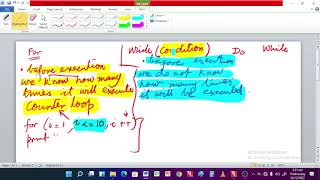 For
• before execution
we know how many
times it will execute
Counter loop
for (i = 1, i <= 10, i++)
print "
While (condition) Do While
• before execution
we do not know
how many times
it will be executed